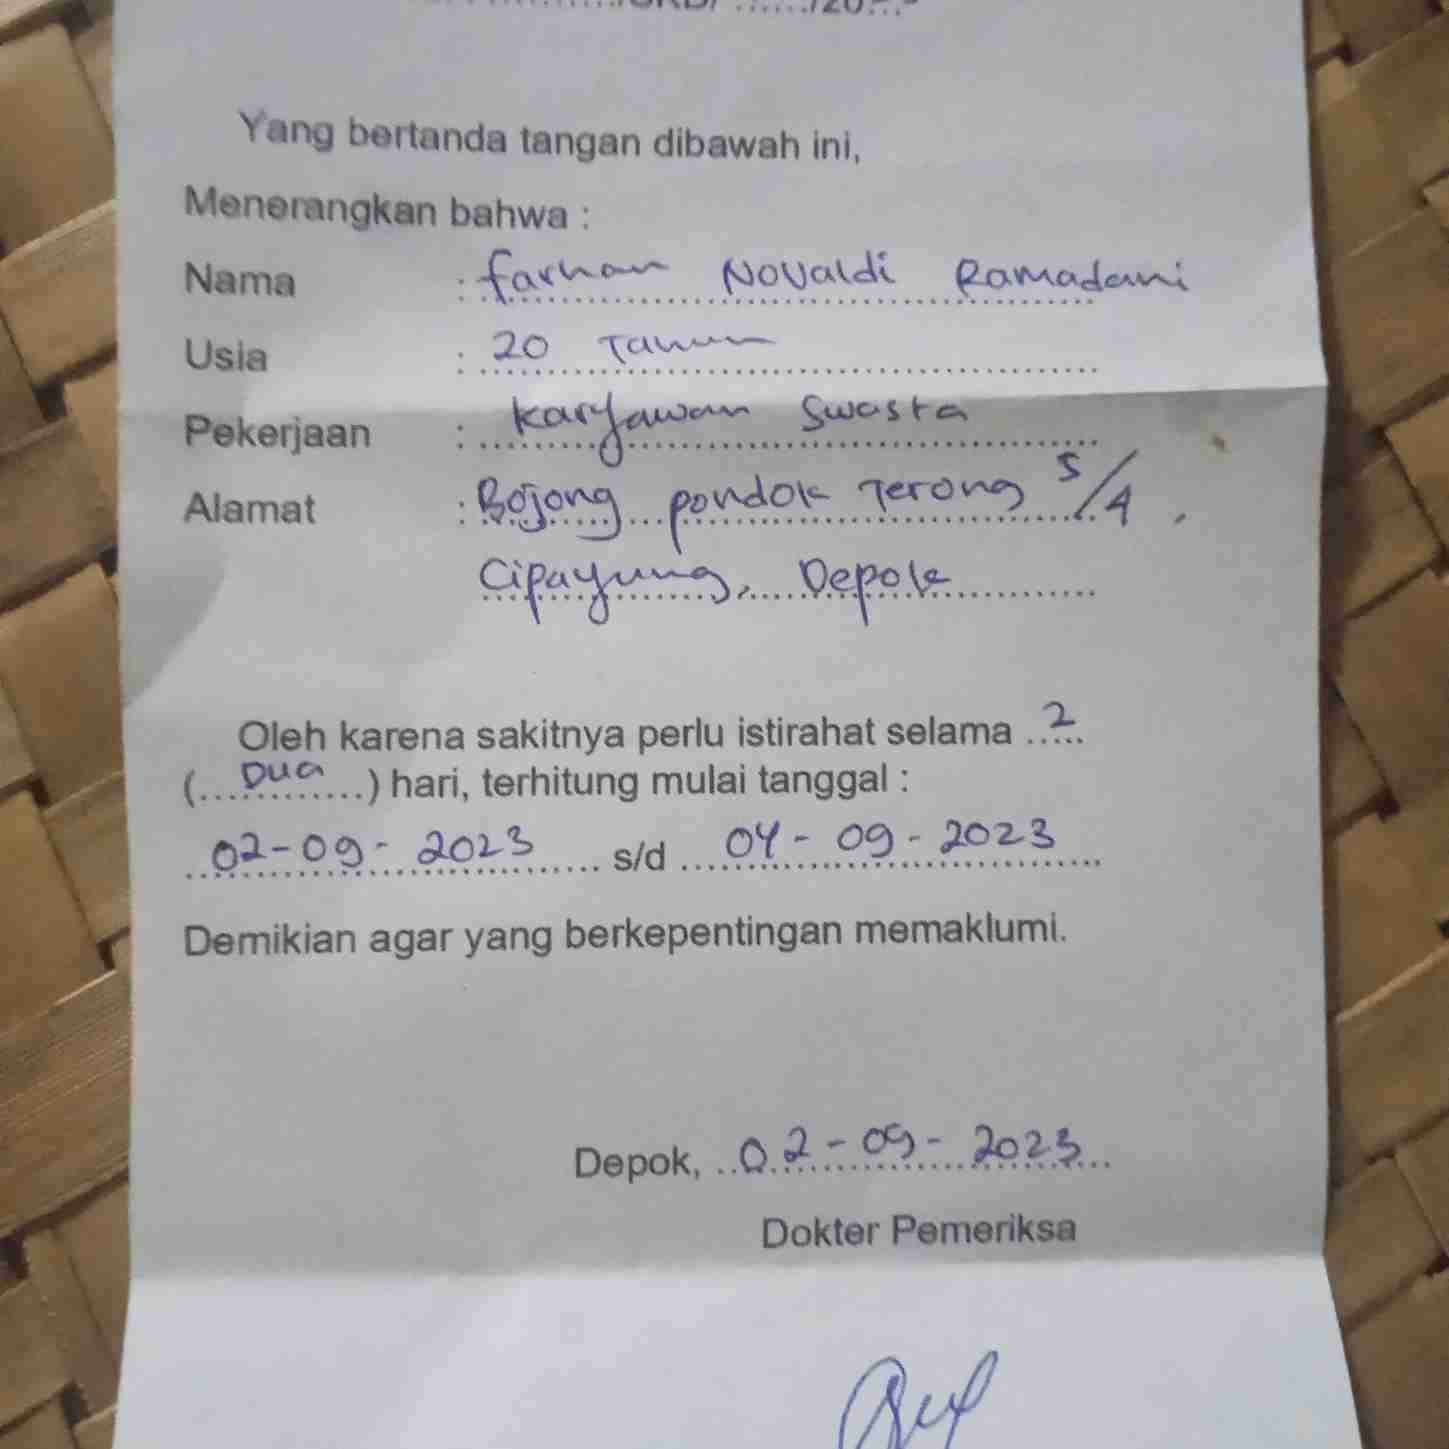 Yang bertanda tangan dibawah ini,
Menerangkan bahwa :
Nama : Farhan Novaldi Ramadani
Usia : 20 Tahun
Pekerjaan : Karyawan Swasta
Alamat : Bojong pondok Terong 5/4 ,
Cipayung, Depok
Oleh karena sakitnya perlu istirahat selama 2
(Dua) hari, terhitung mulai tanggal :
02-09-2023 s/d 04-09-2023
Demikian agar yang berkepentingan memaklumi.
Depok, 02-09-2023
Dokter Pemeriksa